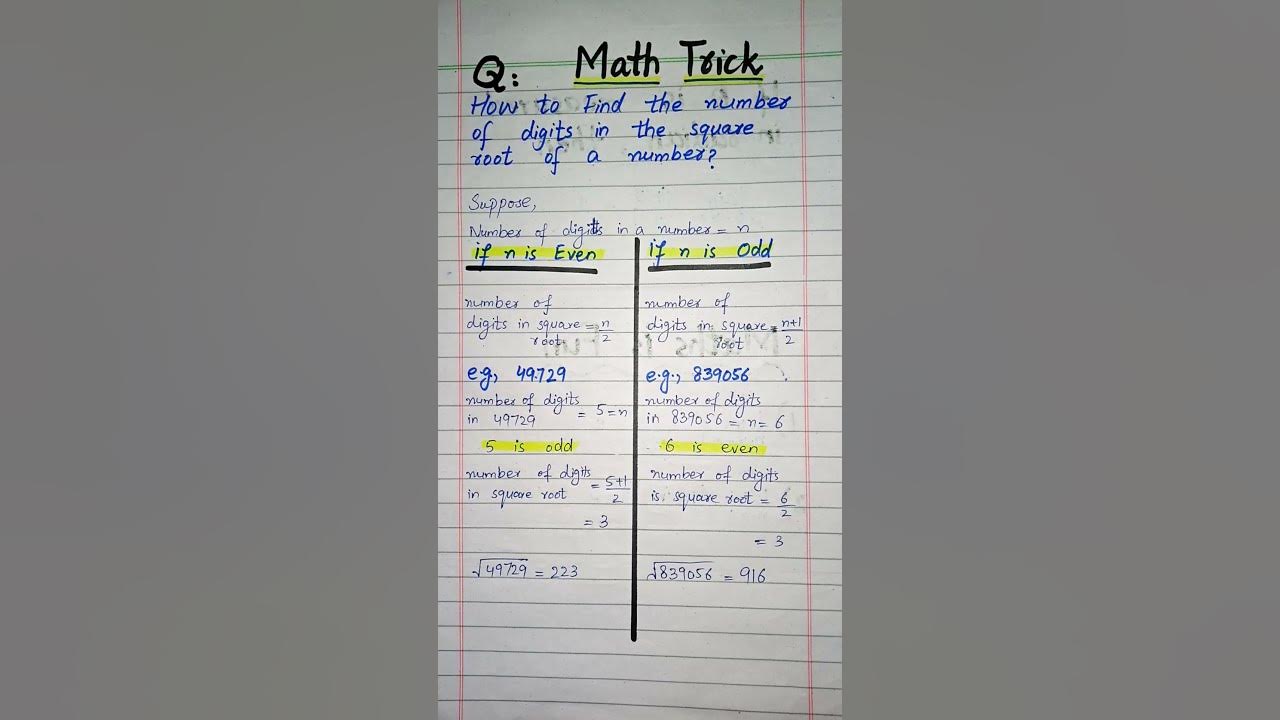 Q: Math Trick
How to Find the number
of digits in the square
root of a number?
Suppose,
Number of digits in a number = n
if n is Even
number of
digits in square = n/2
root
e.g, 49729
number of digits
in 49729 = 5 = n
5 is odd
number of digits
in square root = 5+1/2
= 3
√49729 = 223
if n is Odd
number of
digits in square = n+1/2
root
e.g., 839056
number of digits
in 839056 = n = 6
6 is even
number of digits
is square root = 6/2
= 3
√839056 = 916